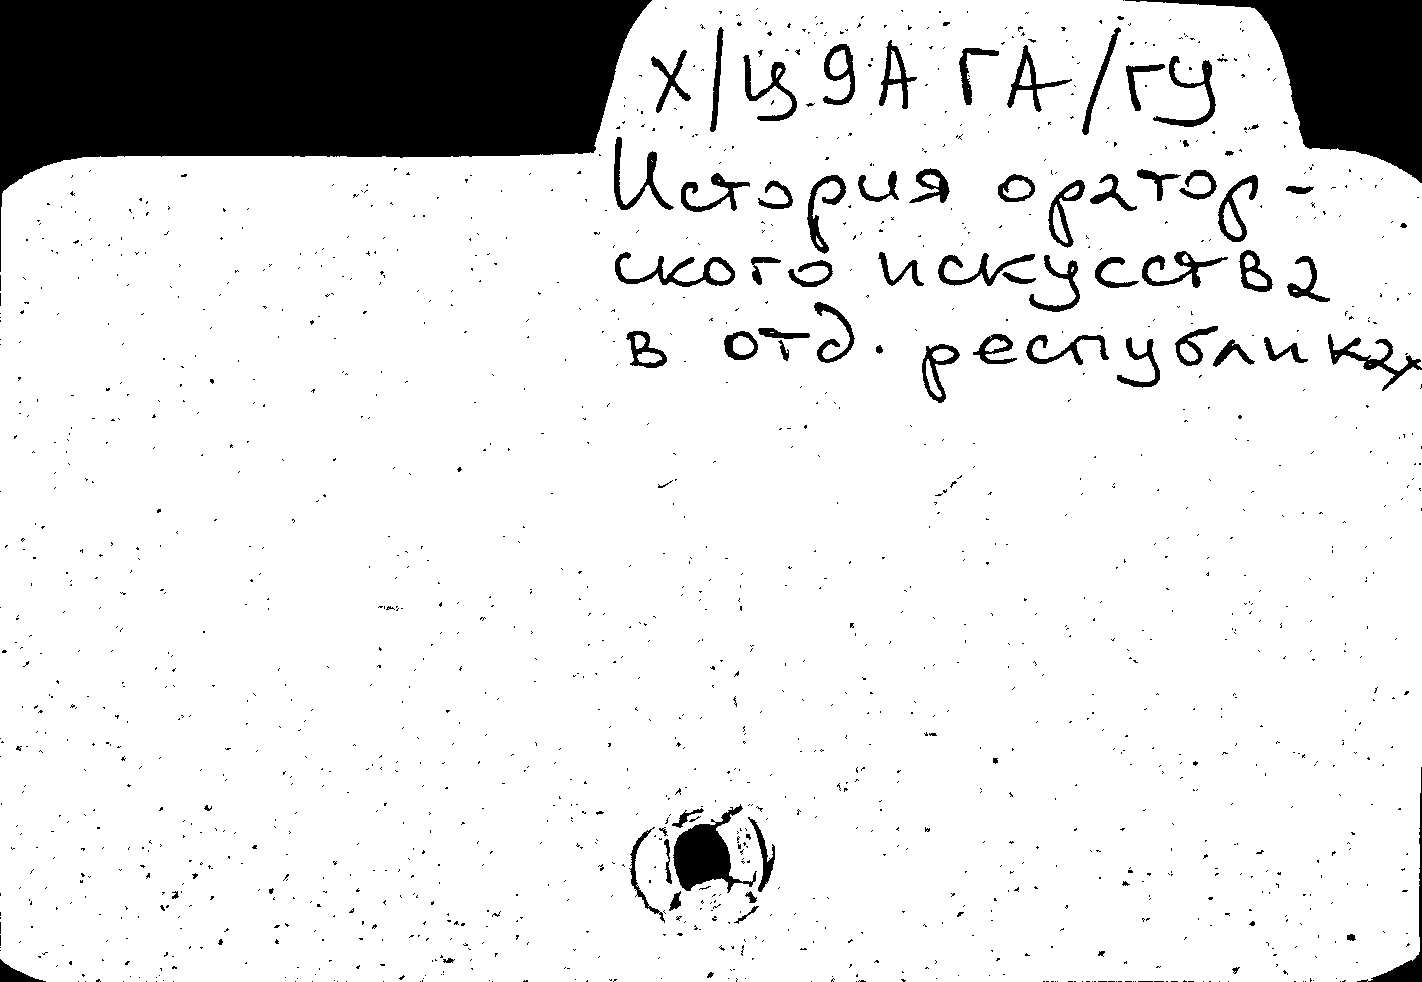 Х/Ц9АГА/ГУ
История оратор-
ского искусства
в отд. республиках